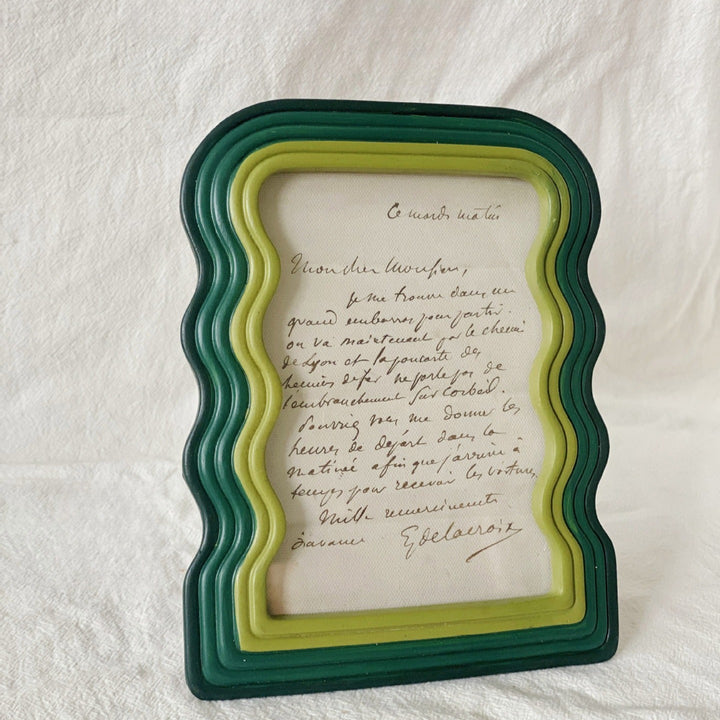 Ce mardi matin
Mon cher Monsieur,
je me trouve dans un
grand embarras pour partir.
on va maintenant par le chemin
de Lyon et la pancarte des
chemins de fer ne parle pas de
l'embranchement sur Corbeil.
Pourriez vous me donner les
heures de départ dans la
matinée afin que j'arrive à
temps pour recevoir les voitures.
Mille remerciements
d'avance EugDelacroix